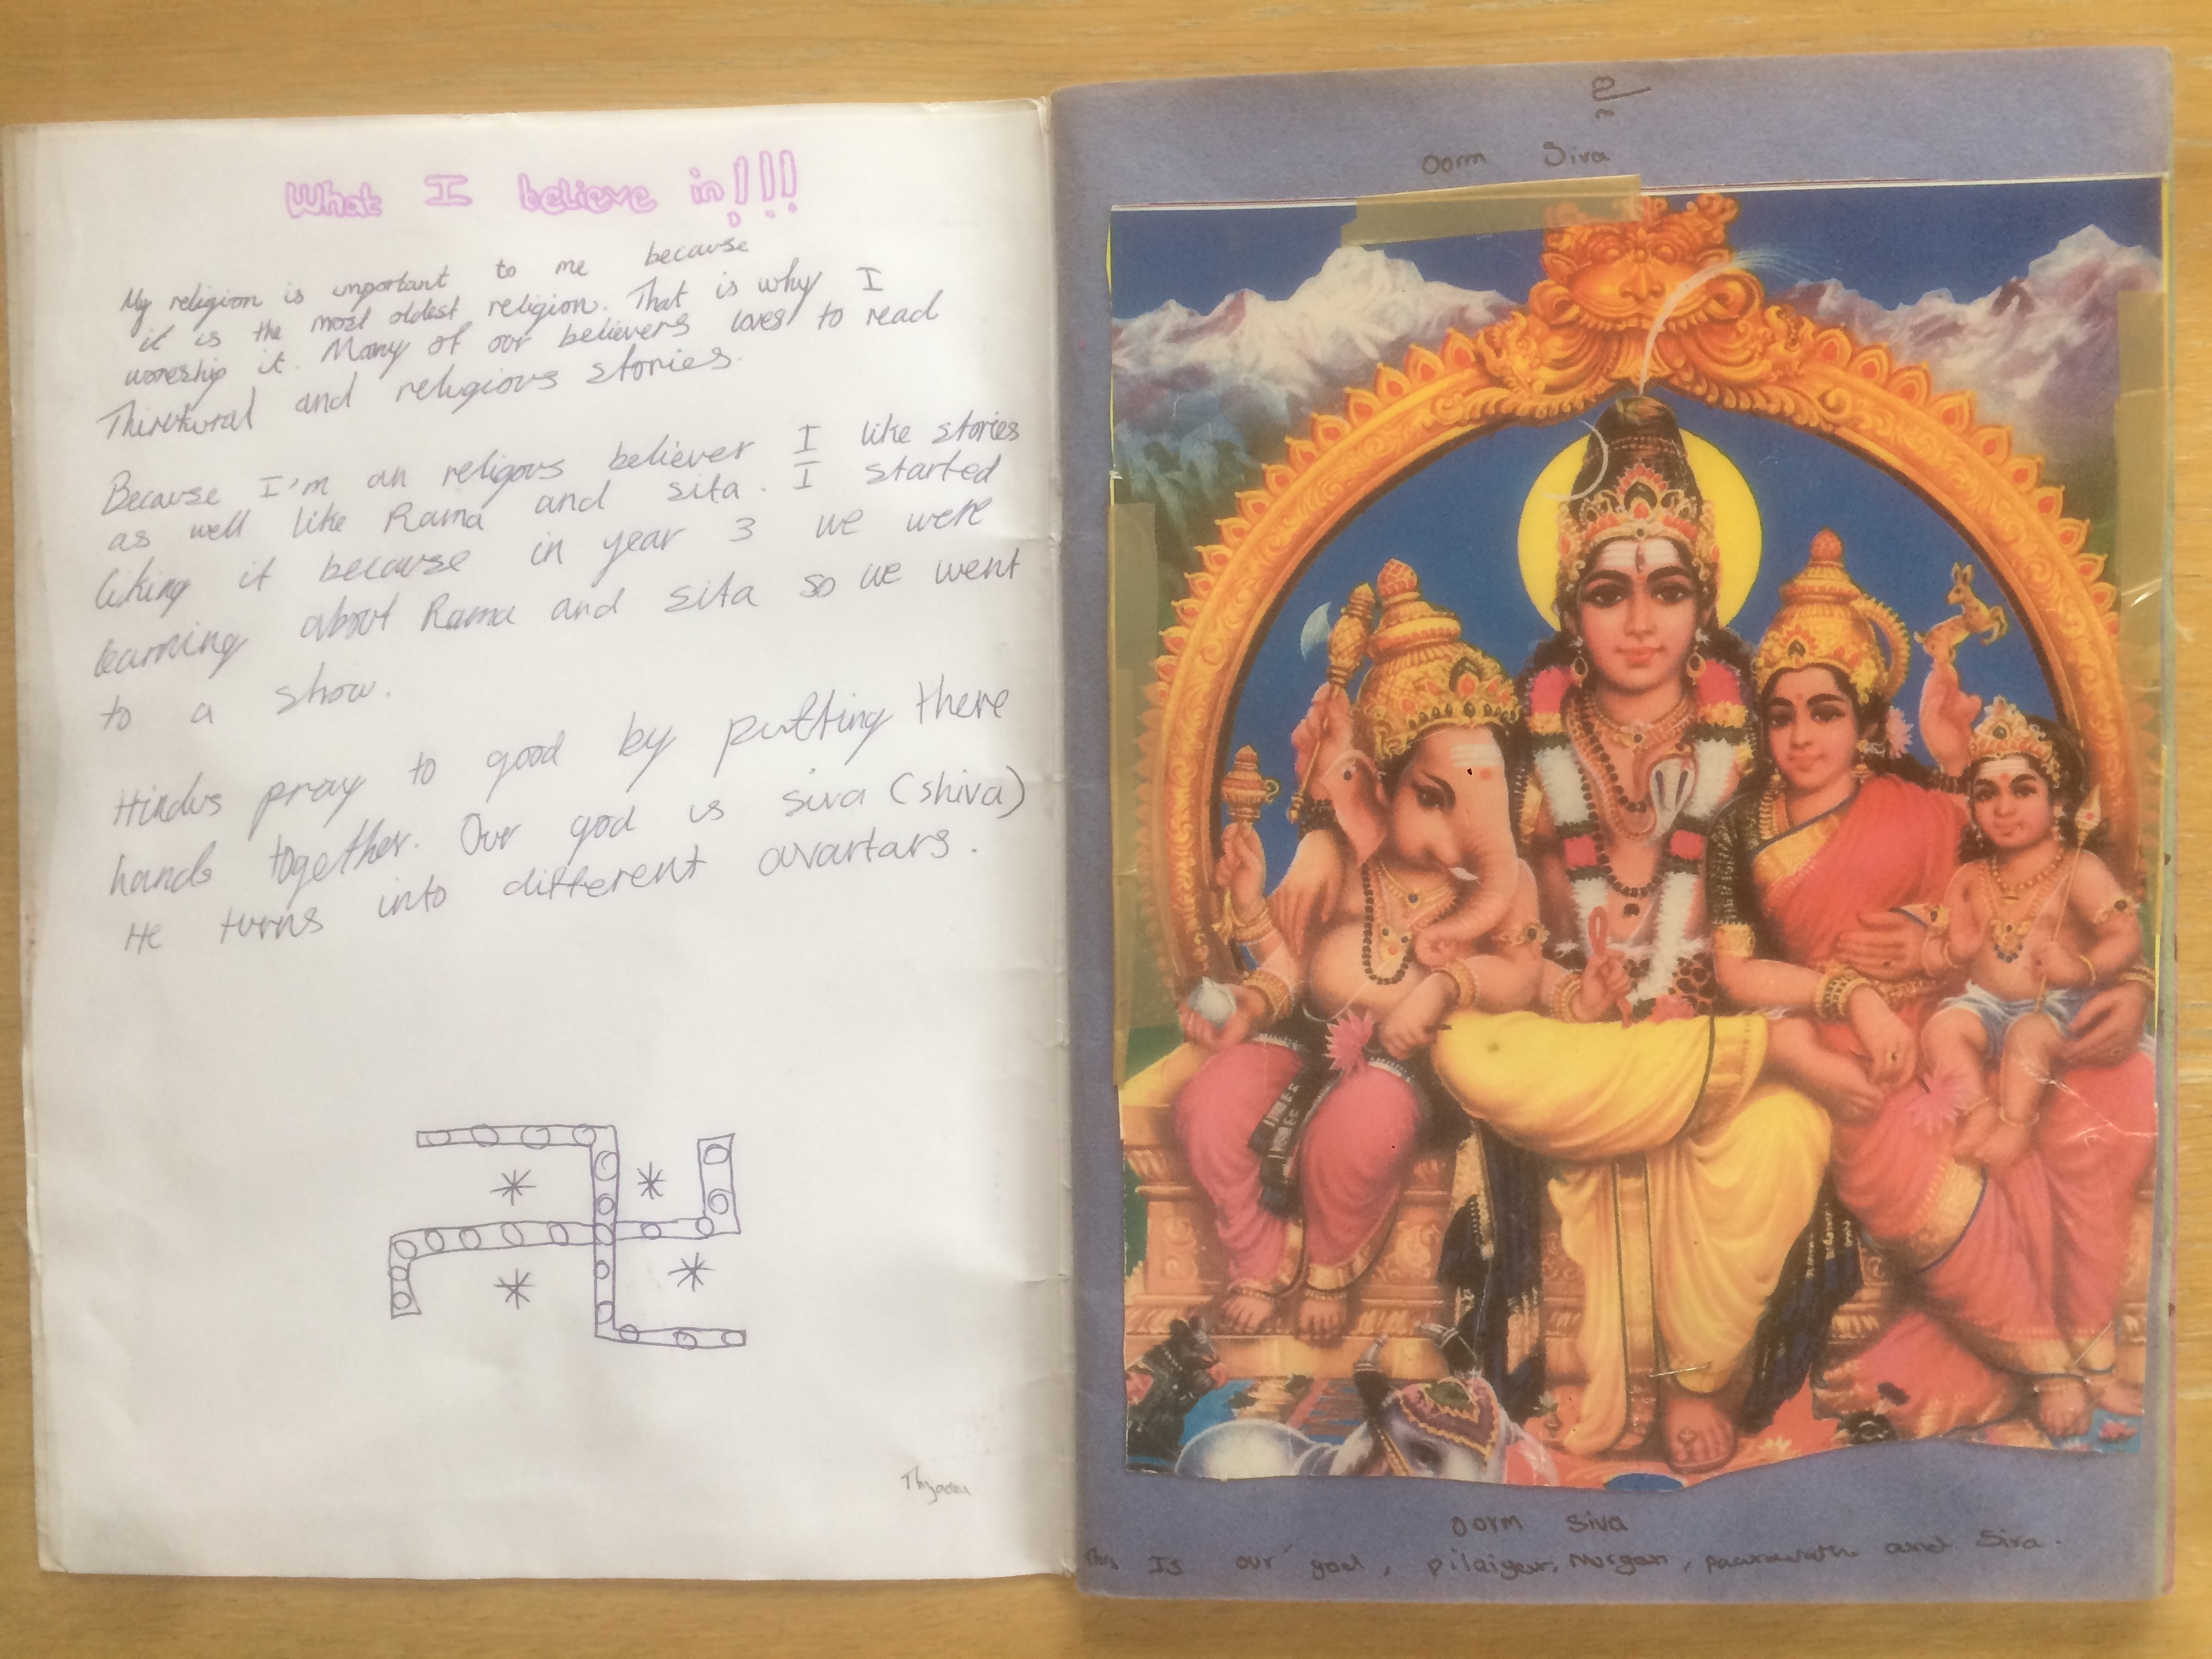 What I believe in!!!
My religion is important to me because
it is the most oldest religion. That is why I
woreship it. Many of our believers loves to read
Thirukural and religious stories.
Because I'm an religous believer I like stories
as well like Rama and sita. I started
liking it because in year 3 we were
learning about Rama and sita so we went
to a show.
Hindus pray to good by putting there
hands together. Our god is siva (shiva)
He turns into different avartars.
oorm Siva
oorm siva
This Is our god, pilaiyeur, Morgan, and Siva.